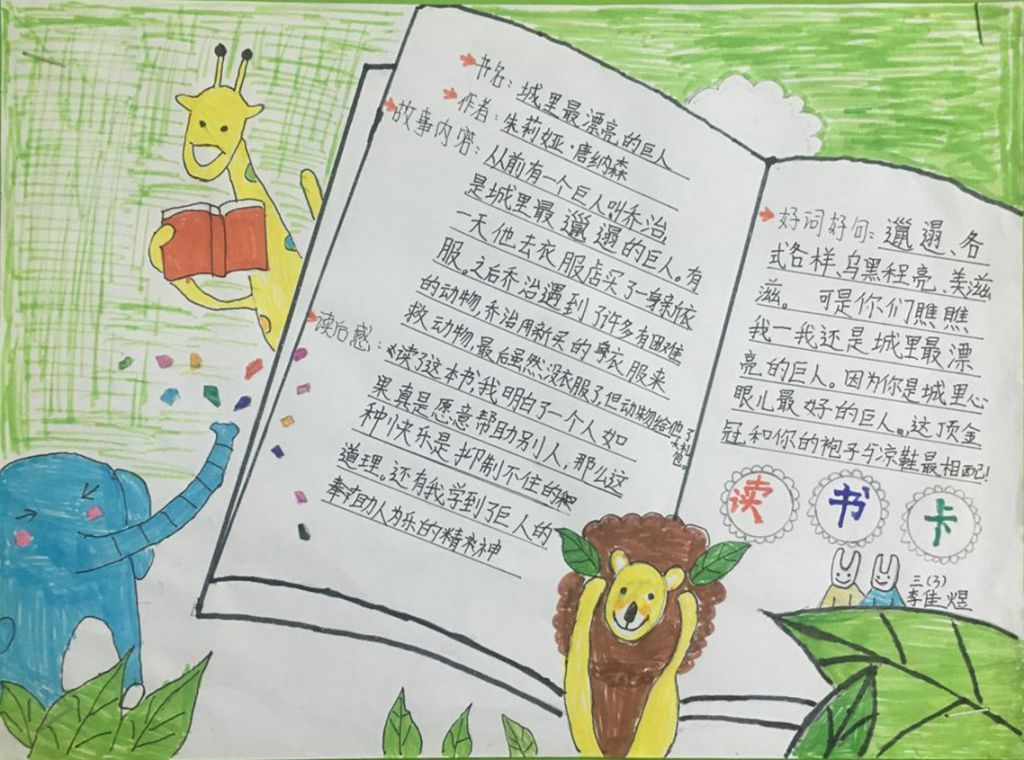 书名：城里最漂亮的巨人
作者：朱莉娅·唐纳森
故事内容：从前有一个巨人叫乔治,
是城里最邋遢的巨人。有
一天他去衣服店买了一身新衣
服,之后乔治遇到了许多有困难
的动物,乔治用新买的衣服来
救动物,最后虽然没衣服了,但动物给他了礼包。
读后感：读了这本书,我明白了一个人如
果真是愿意帮助别人，那么这
种快乐是抑制不住的
道理。还有我学到了巨人的
助人为乐的精神
好词好句：邋遢、各
式各样、乌黑程亮、美滋
滋。 可是你们瞧瞧
我一我还是城里最漂
亮的巨人。因为你是城里心
眼儿最好的巨人。这顶金
冠,和你的袍子与凉鞋最相配!
读书卡
三(3)
李佳煜